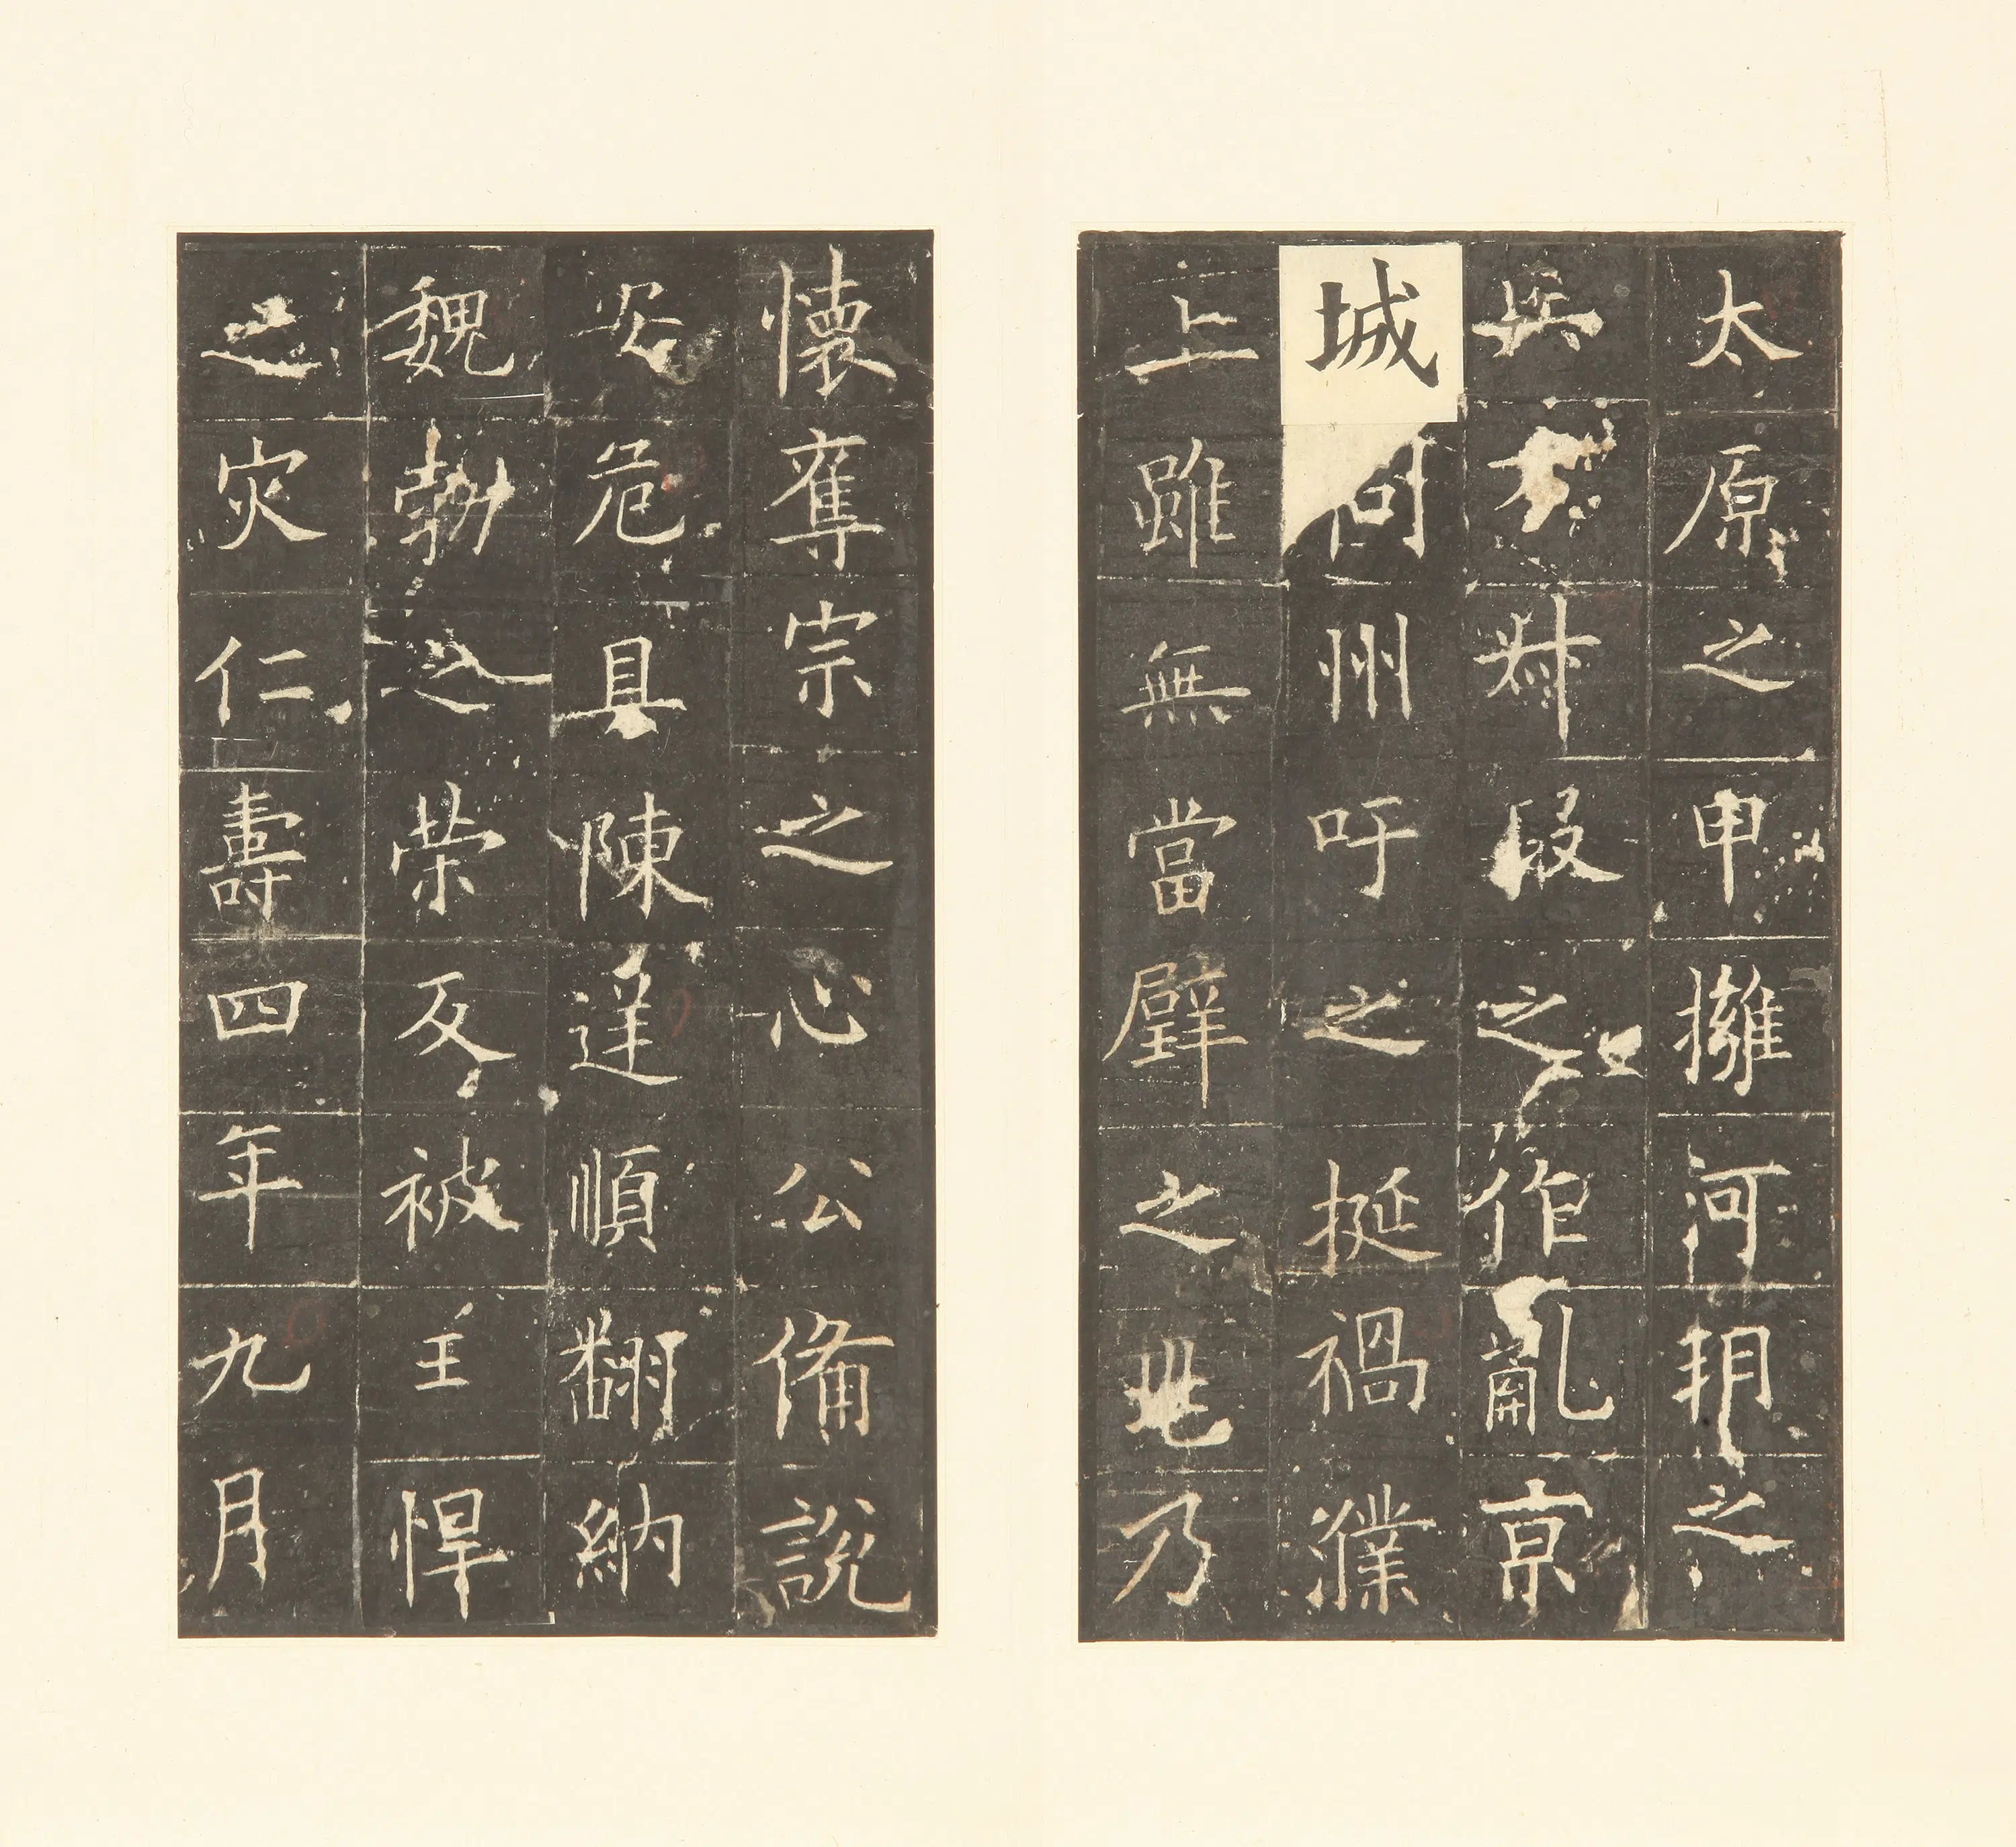 太原之甲擁河朔之
兵方叔段之作亂京
城同州吁之挺禍濮
上雖無當璧之兆乃
懷奪宗之心公備說
安危具陳逆順翻納
魏勃之榮反被王悍
之灾仁壽四年九月